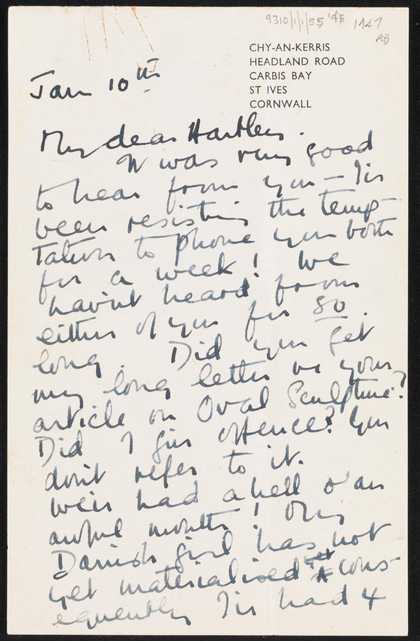 9310/1/1/55 '45
1947
CHY-AN-KERRIS
HEADLAND ROAD
CARBIS BAY
ST IVES
CORNWALL
Jan 10th
My dear Hartleys.
It was very good
to hear from you – I've
been resisting the temp-
tation to phone you both
for a week! We
havn't heard from
either of you for so
long. Did you get
my long letter re your
article on Oval Sculpture?
Did I give offence? You
don't refer to it.
We've had a hell o' an
awful month! Our
Danish girl has not
yet materialised & cons-
equently I've had 4